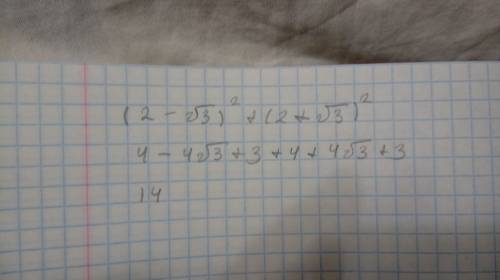 (2 - √3)² + (2 + √3)²
4 - 4√3 + 3 + 4 + 4√3 + 3
14